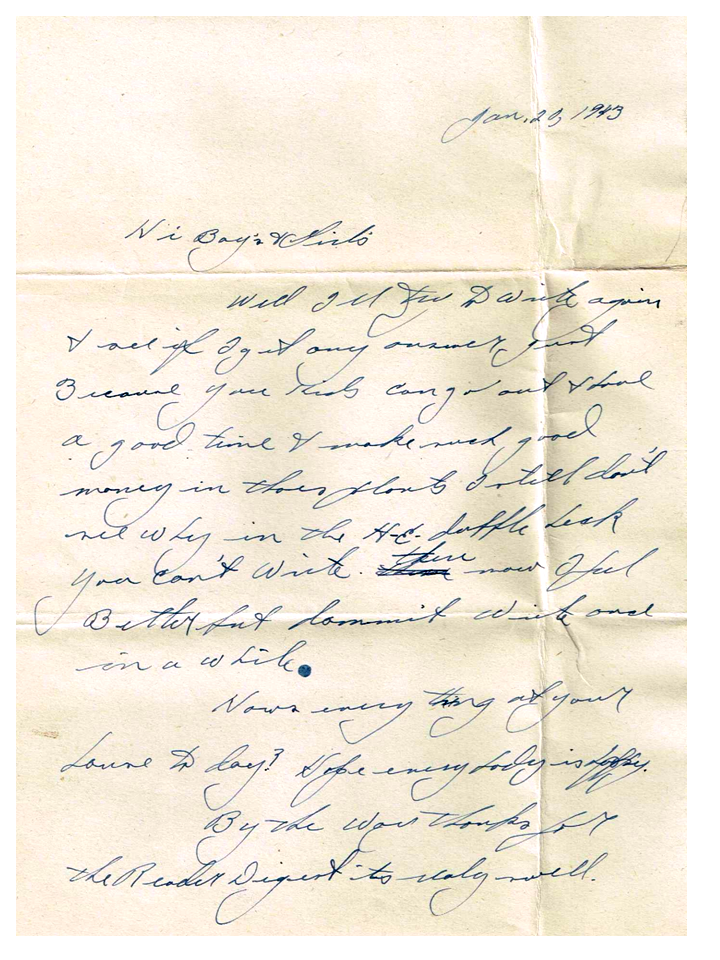 Jan. 20, 1943
Hi Boy's & Girls
Well I'll try to write again
& see if I get any answer, just
Because you kids can go out & have
a good time & make such good
money in thoes plants I still don't
see why in the H-e- double heck
you can't write. there now I feel
Better but dammit write once
in a while.
Hows every thing at your
house to day? Hope every body is happy.
By the way thanks for
the Reader Digest its realy swell.